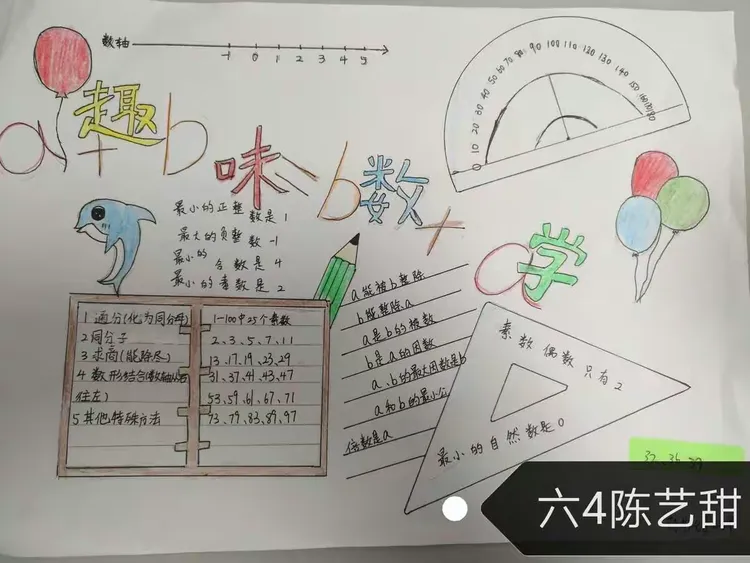 数轴
-1 0 1 2 3 4 5
0 10 20 30 40 50 60 70 80 90 100 110 120 130 140 150 160 170 180
a+b=b+a
趣味数学
最小的正整数是1
最大的负整数-1
最小的合数是4
最小的素数是2
1 通分(化为同分母)
2 同分子
3 求商(能除尽)
4 数形结合(数轴从右
往左)
5 其他特殊方法
1-100中25个素数
2、3、5、7、11
13、17、19、23、29
31、37、41、43、47
53、59、61、67、71
73、79、83、89、97
a能被b整除
b能整除a
a是b的倍数
b是a的因数
a、b的最大因数是b
a和b的最小公
倍数是a
素数偶数只有2
最小的自然数是0
六4陈艺甜